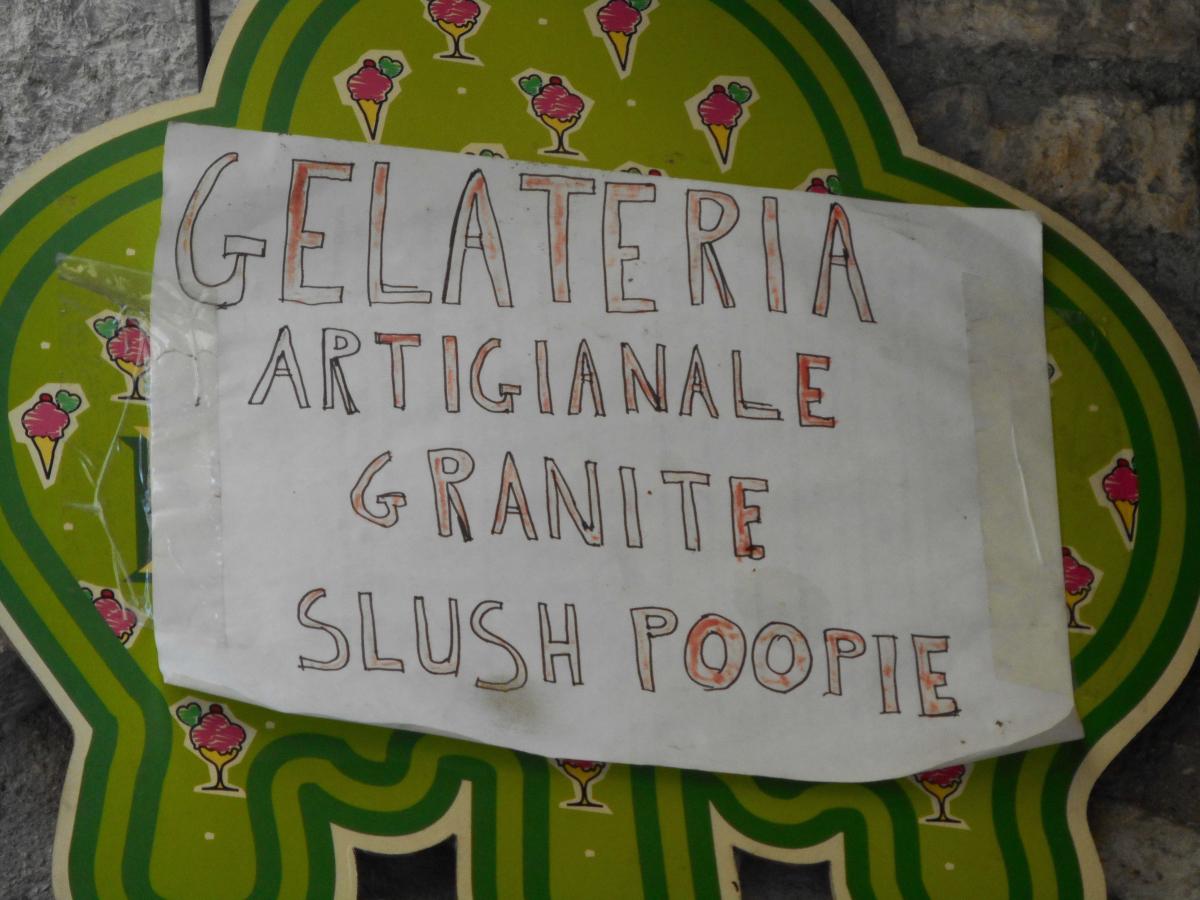 GELATERIA
ARTIGIANALE
GRANITE
SLUSH POOPIE